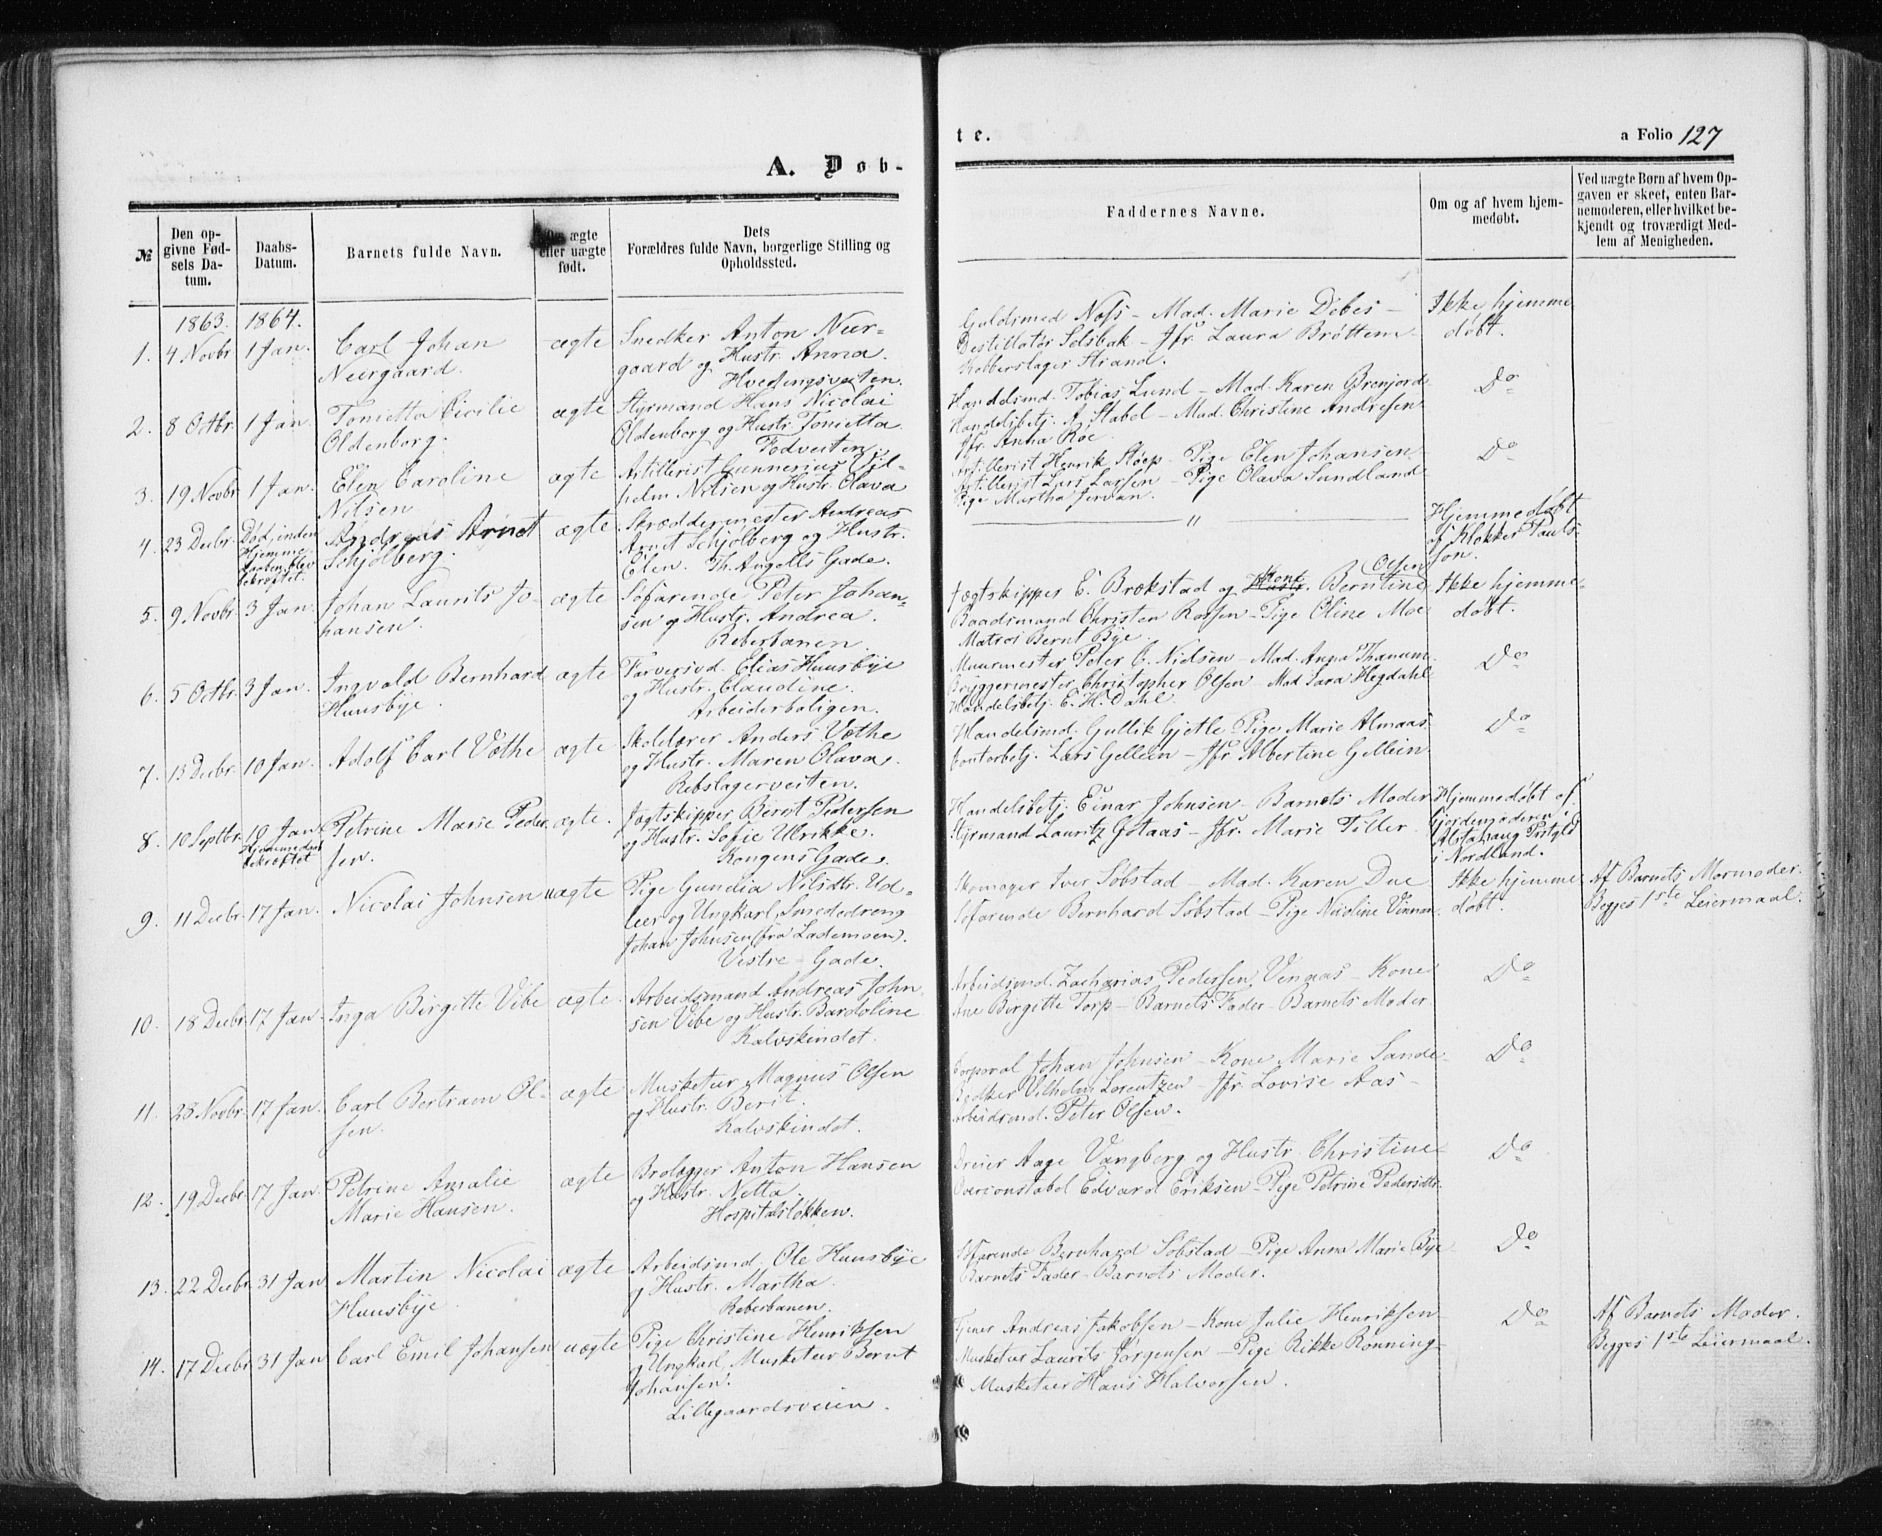 A. Døb-
te.
a Folio 127
№
Den op-
givne Fød-
sels Da-
tum.
Daabs-
Datum.
Barnets fulde Navn.
Om ægte
eller uægte
født.
Dets
Forældres fulde Navn, borgerlige Stilling og
Opholdssted.
Faddernes Navne.
Om og af hvem hjem-
medøbt.
Ved uægte Børn af hvem Op-
gaven er skeet, enten Bar-
nemoderen, eller hvilket be-
kjendt og troværdigt Med-
lem af Menigheden.
1863. 1864.
1. 4 Novbr 1 Jan.
Carl Johan
Neergaard.
ægte
Snedker Anton Neer-
gaard og Hustr. Anna.
Hvedingsveiten.
Guldsmed Noss - Mad. Marie Debes -
Destillatør Solsbak - Jfr. Laura Brøttem
Kobberslager Strand.
Ikke hjemme
døbt.
2. 8 Octbr 1 Jan.
Tonietta Cicilie
Oldenborg.
ægte
Styrmand Hans Nicolai
Oldenborg og Hustr. Tonietta
Fodveiten.
Handelsmd. Tobias Lund - Mad. Karen Grenjord
Handelsbetj. A. Stabel - Mad. Christine Andresen
Jfr. Anna Roe.
Do
3. 19 Novbr 1 Jan.
Elen Caroline
Nilsen
ægte
Artillerist Gunnerius Vil-
helm Nilsen og Hustr. Olava
Artillerist Henrik Støep - Pige Elen Johansen
Artillerist Lars Larsen - Pige Olava Sundland
Pige Martha Jervan.
Do
4. 23 Decbr
Død, inden
Hjemme-
daaben blev
bekræftet.
Andreas Arnet
Schjølberg.
ægte
Skræddermester Andreas
Arnet Schjølberg og Hustr.
Elen. Th. Angells Gade.
"
Hjemmedøbt
af Klokker Pauls-
son.
5. 9. Novbr 3 Jan.
Johan Laurits Jo-
hansen.
ægte
Søfarende Peter Johan-
sen og Hustr. Andrea.
Reberbanen.
Jægtskipper E. Brækstad og Hustr. Kone Berntine Olsen
Baadsmand Christen Rossen - Pige Oline Moe
Matros Bernt Bye.
Ikke hjemme-
døbt.
6. 5 Octbr 3 Jan.
Ingvald Bernhard
Huusbye.
ægte
Farversvd. Elias Huusbye
og Hustr. Claudine.
Arbeiderboligen.
Muurmester Peter C. Nielsen - Mad. Anna Thanum
Bryggermester Christopher Olsen - Mad Sara Hegdahl
Handelsbetj. E. H. Dahl.
Do
7. 15 Decbr. 10 Jan.
Adolf Carl Væthe
ægte
Skolelærer Anders Væthe
og Hustr. Maren Olava.
Rebslagerveiten.
Handelsmd. Gullik Gjetle Pige Marie Almaas
Contorbetj. Lars Gellein - Jfr. Albertine Gellein
Do
8. 10 Septbr. 10 Jan
Hjemmedaab
bekræftet
Petrine Marie Peder-
sen.
ægte.
Jægtskipper Bernt Pedersen
og Hustr. Sofie Ulrikke.
Kongens Gade.
Handelsbetj. Einar Johnsen - Barnets Moder
Styrmand Lauritz Gotaas - Jfr. Marie Tiller.
Hjemmedøbt af
Gjordemoderen i
Alstahaug Præstgld
i Nordland.
9. 11 Decbr. 17 Jan.
Nicolai Johnsen
uægte
Pige Gunelia Nilsdtr. Ud-
leer og Ungkarl, Smededreng
Johan Johnsen (fra Lademoen).
Vestre Gade.
Skomager Iver Søbstad - Mad. Karen Due
Søfarende Bernhard Søbstad - Pige Nicoline Vinnan.
Ikke hjemme
døbt.
Af Barnets Mormoder.
Begges 1ste Leiermaal.
10. 18 Decbr. 17 Jan.
Inga Birgitte Vibe
ægte.
Arbeidsmand Andreas John-
sen Vibe og Hustr. Bardoline
Kalvskindet.
Arbeidsmd. Zacharias Pedersen Venaas - Kone
Ane Birgitte Torp - Barnets Fader - Barnets Moder.
Do
11. 28 Novbr. 17 Jan.
Carl Bertram Ol-
sen.
ægte
Musketeer Magnus Olsen
og Hustr. Berit.
Kalvskindet.
Corporal Johan Johnsen - Kone Marie Sande-
Bødker Vilhelm Lorentzen - Jfr. Lovise Aas -
Arbeidsmd. Peter Olsen.
Do
12. 19 Decbr. 17 Jan.
Petrine Amalie
Marie Hansen.
ægte
Brolægger Anton Hansen
og Hustr. Netta.
Hospitalsløkken.
Dreier Aage Vangberg og Hustr. Christine
Overconstabel Edvard Eriksen - Pige Petrine Pedersdtr.
Do
13. 22 Decbr. 31 Jan
Martin Nicolai
Huusbye.
ægte
Arbeidsmd. Ole Huusbye
og Hustr. Martha.
Reberbanen.
Søfarende Bernhard Søbstad - Pige Anna Marie Bye
Barnets Fader - Barnets Moder.
Do
14. 17 Decbr. 31 Jan
Carl Emil Johansen
uægte
Pige Christine Henriksen
og Ungkarl, Musketeer Bernt
Johansen.
Lillegaardsveien.
Tjener Andreas Jakobsen - Kone Julie Henriksen
Musketeer Laurits Jørgensen - Pige Rikke Rønning-
Musketeer Hans Halvorsen.
Do
Af Barnets Moder.
Begges 1ste Leiermaal.